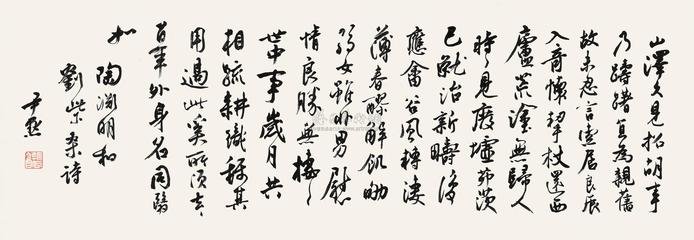 山澤久見招胡事
乃躊躇直為親舊
故未忍言索居良辰
入奇懷挈杖還西
廬荒塗無歸人
時々見廢墟茅茨
已就治新疇復
應畬谷風轉淒
薄春醪解飢劬
弱女雖非男慰
情良勝無棲々
世中事歲月共
相疏耕織稱其
用過此奚所須去々
百年外身名同翳
如 陶淵明和
劉柴桑詩
尹默